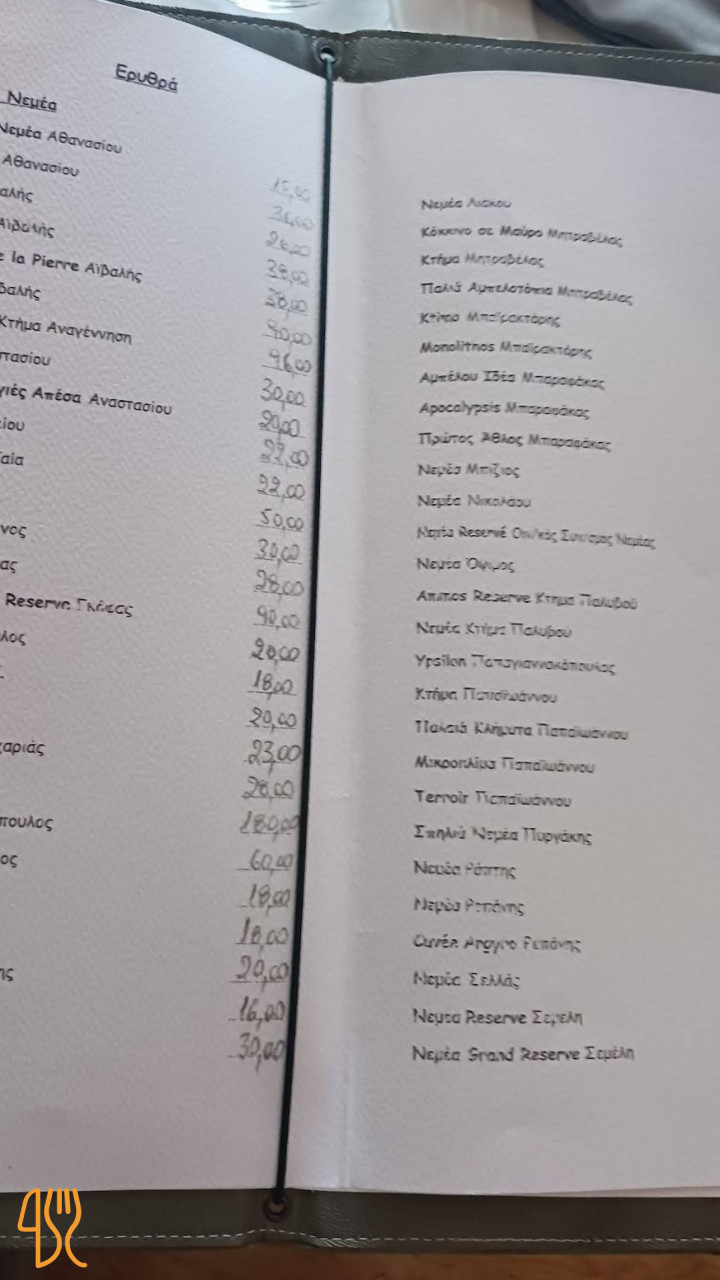 Ερυθρά
Νεμέα
Νεμέα Αθανασίου
Αθανασίου 15,00
αλής 36,00
Αϊβαλής 26,00
la Pierre Αϊβαλής 38,00
βαλής 38,00
Κτήμα Αναγέννηση 40,00
στασίου 46,00
γιές Απέσα Αναστασίου 30,00
ίου 20,00
αία 27,00
22,00
νος 50,00
ας 30,00
28,00
Reserve Γκόφας 90,00
λος 20,00
18,00
20,00
χαριάς 23,00
28,00
πουλος 180,00
ος 60,00
18,00
18,00
ης 20,00
16,00
30,00
Νεμέα Λιάκου
Κόκκινο σε Μαύρο Μητραβέλας
Κτήμα Μητραβέλας
Παλιά Αμπελοτόπια Μητραβέλας
Κτήμα Μπαϊρακτάρης
Monolithos Μπαϊρακτάρης
Αμπέλου Ιδέα Μπαραφάκας
Apocalypsis Μπαραφάκας
Πρώτος Άθλος Μπαραφάκας
Νεμέα Μπίζιος
Νεμέα Νικολάου
Νεμέα Reserve Οιν/κός Συν/σμος Νεμέας
Νεμέα Όψιμος
Reserve Κτήμα Παλυβού
Νεμέα Κτήμα Παλυβού
Ypsilon Παπαγιαννακόπουλος
Κτήμα Παπαϊωάννου
Παλαιά Κλήματα Παπαϊωάννου
Μικροκλίμα Παπαϊωάννου
Terroir Παπαϊωάννου
Σπηλιά Νεμέα Πυργάκης
Νεμέα Ράπτης
Νεμέα Ρεπάνης
Cuvée Argyro Ρεπάνης
Νεμέα Σελλάς
Νεμέα Reserve Σεμέλη
Νεμέα Grand Reserve Σεμέλη